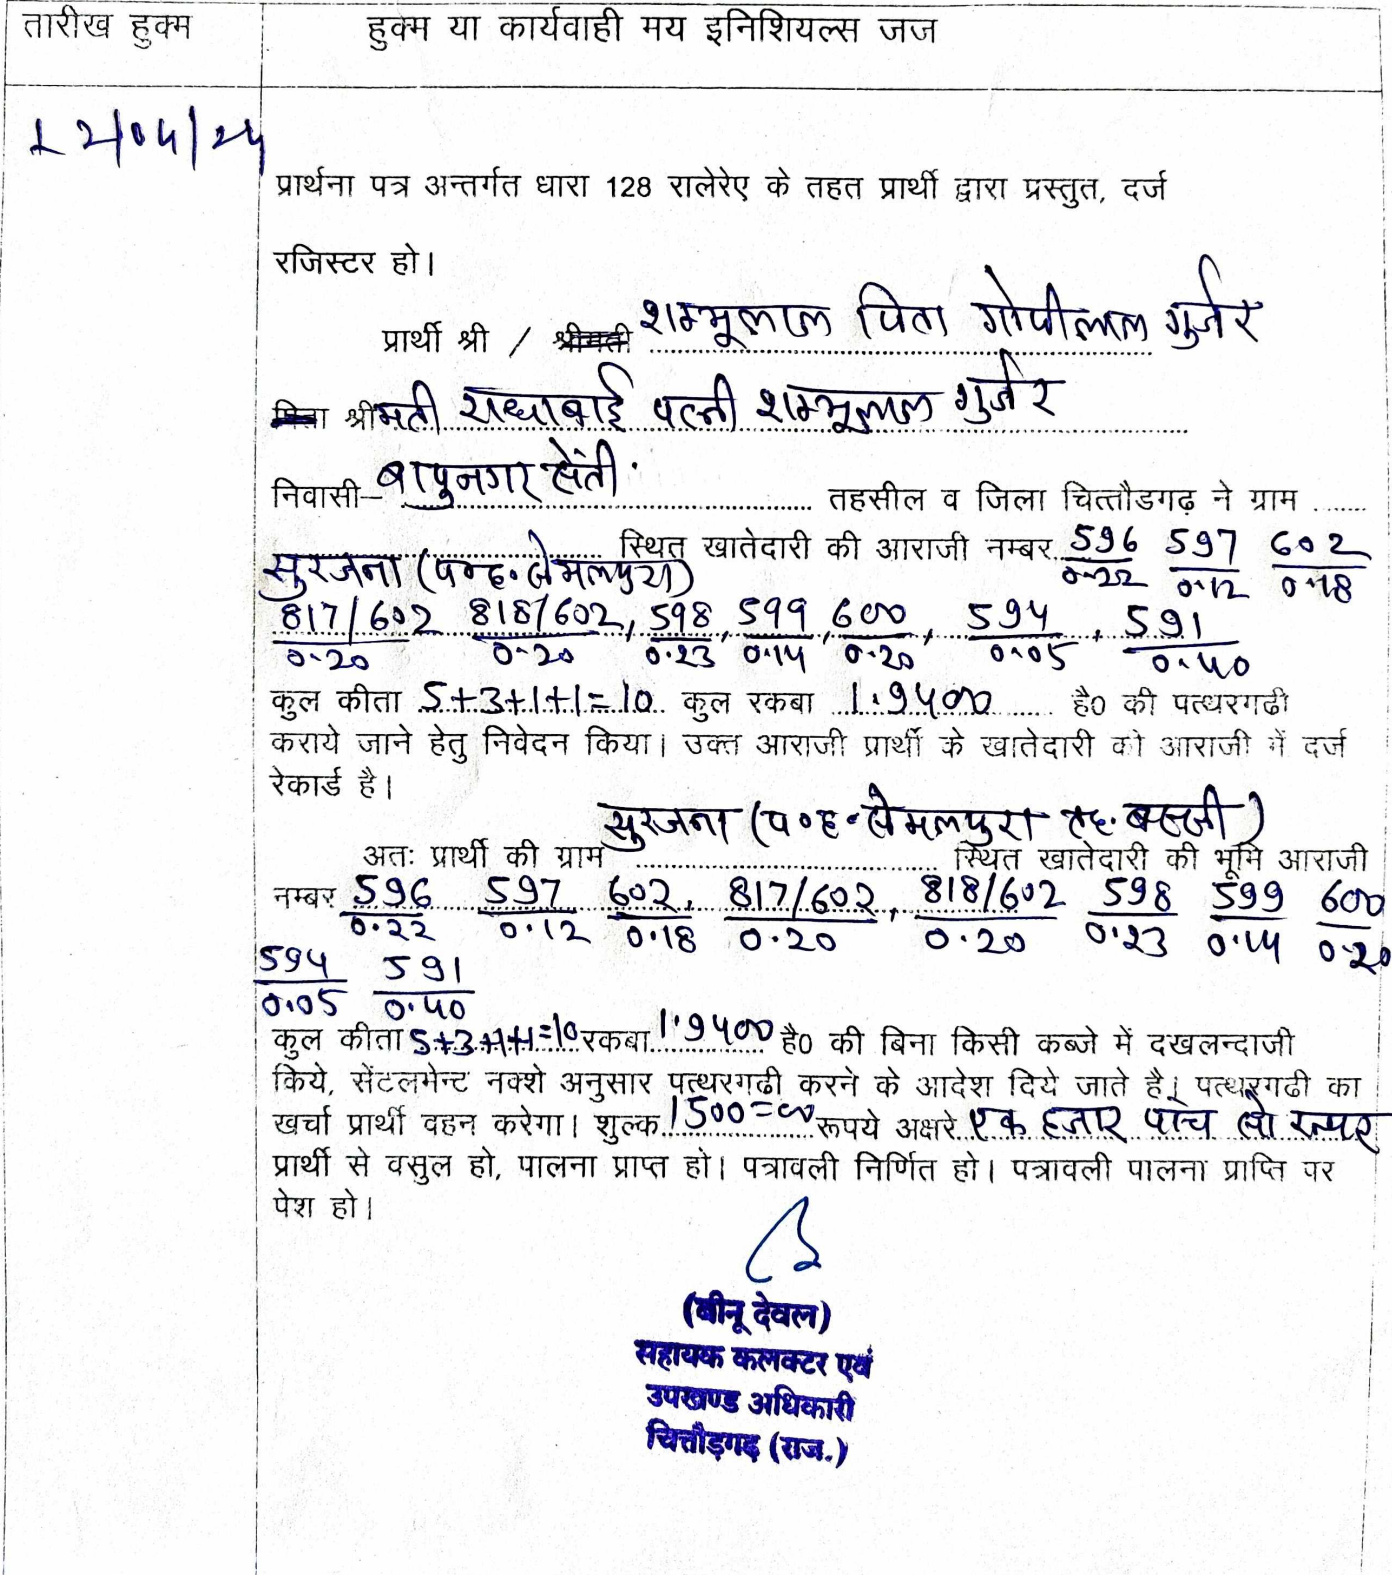 तारीख हुक्म
हुक्म या कार्यवाही मय इनिशियल्स जज
12/04/24
प्रार्थना पत्र अन्तर्गत धारा 128 रालेरेए के तहत प्रार्थी द्वारा प्रस्तुत, दर्ज
रजिस्टर हो।
प्रार्थी श्री / श्रीमती शम्भूलाल पिता गोपीलाल गुर्जर
पिता श्रीमती राधाबाई पत्नी शम्भूलाल गुर्जर
निवासी– बापुनगर सेंती. तहसील व जिला चित्तौडगढ़ ने ग्राम
सुरजना (प०ह० सेमलपुरा) स्थित खातेदारी की आराजी नम्बर 596/0.22 597/0.12 602/0.18
817/602/0.20 818/602/0.20, 598/0.23, 599/0.14, 600/0.20, 594/0.05, 591/0.40
कुल कीता 5+3+1+1=10 कुल रकबा 1.9400 है0 की पत्थरगढी
कराये जाने हेतु निवेदन किया। उक्त आराजी प्रार्थी के खातेदारी की आराजी में दर्ज
रेकार्ड है।
अतः प्रार्थी की ग्राम सुरजना (प०ह० सेमलपुरा तह. बस्सी) स्थित खातेदारी की भूमि आराजी
नम्बर 596/0.22 597/0.12 602/0.18, 817/602/0.20, 818/602/0.20 598/0.23 599/0.14 600/0.20
594/0.05 591/0.40
कुल कीता 5+3+1+1=10 रकबा 1.9400 है0 की बिना किसी कब्जे में दखलन्दाजी
किये, सेंटलमेन्ट नक्शे अनुसार पत्थरगढी करने के आदेश दिये जाते है। पत्थरगढी का
खर्चा प्रार्थी वहन करेगा। शुल्क 1500=00 रूपये अक्षरे एक हजार पांच सो रूपए
प्रार्थी से वसुल हो, पालना प्राप्त हो। पत्रावली निर्णित हो। पत्रावली पालना प्राप्ति पर
पेश हो।
(बीनू देवल)
सहायक कलक्टर एवं
उपखण्ड अधिकारी
चित्तौड़गढ़ (राज.)